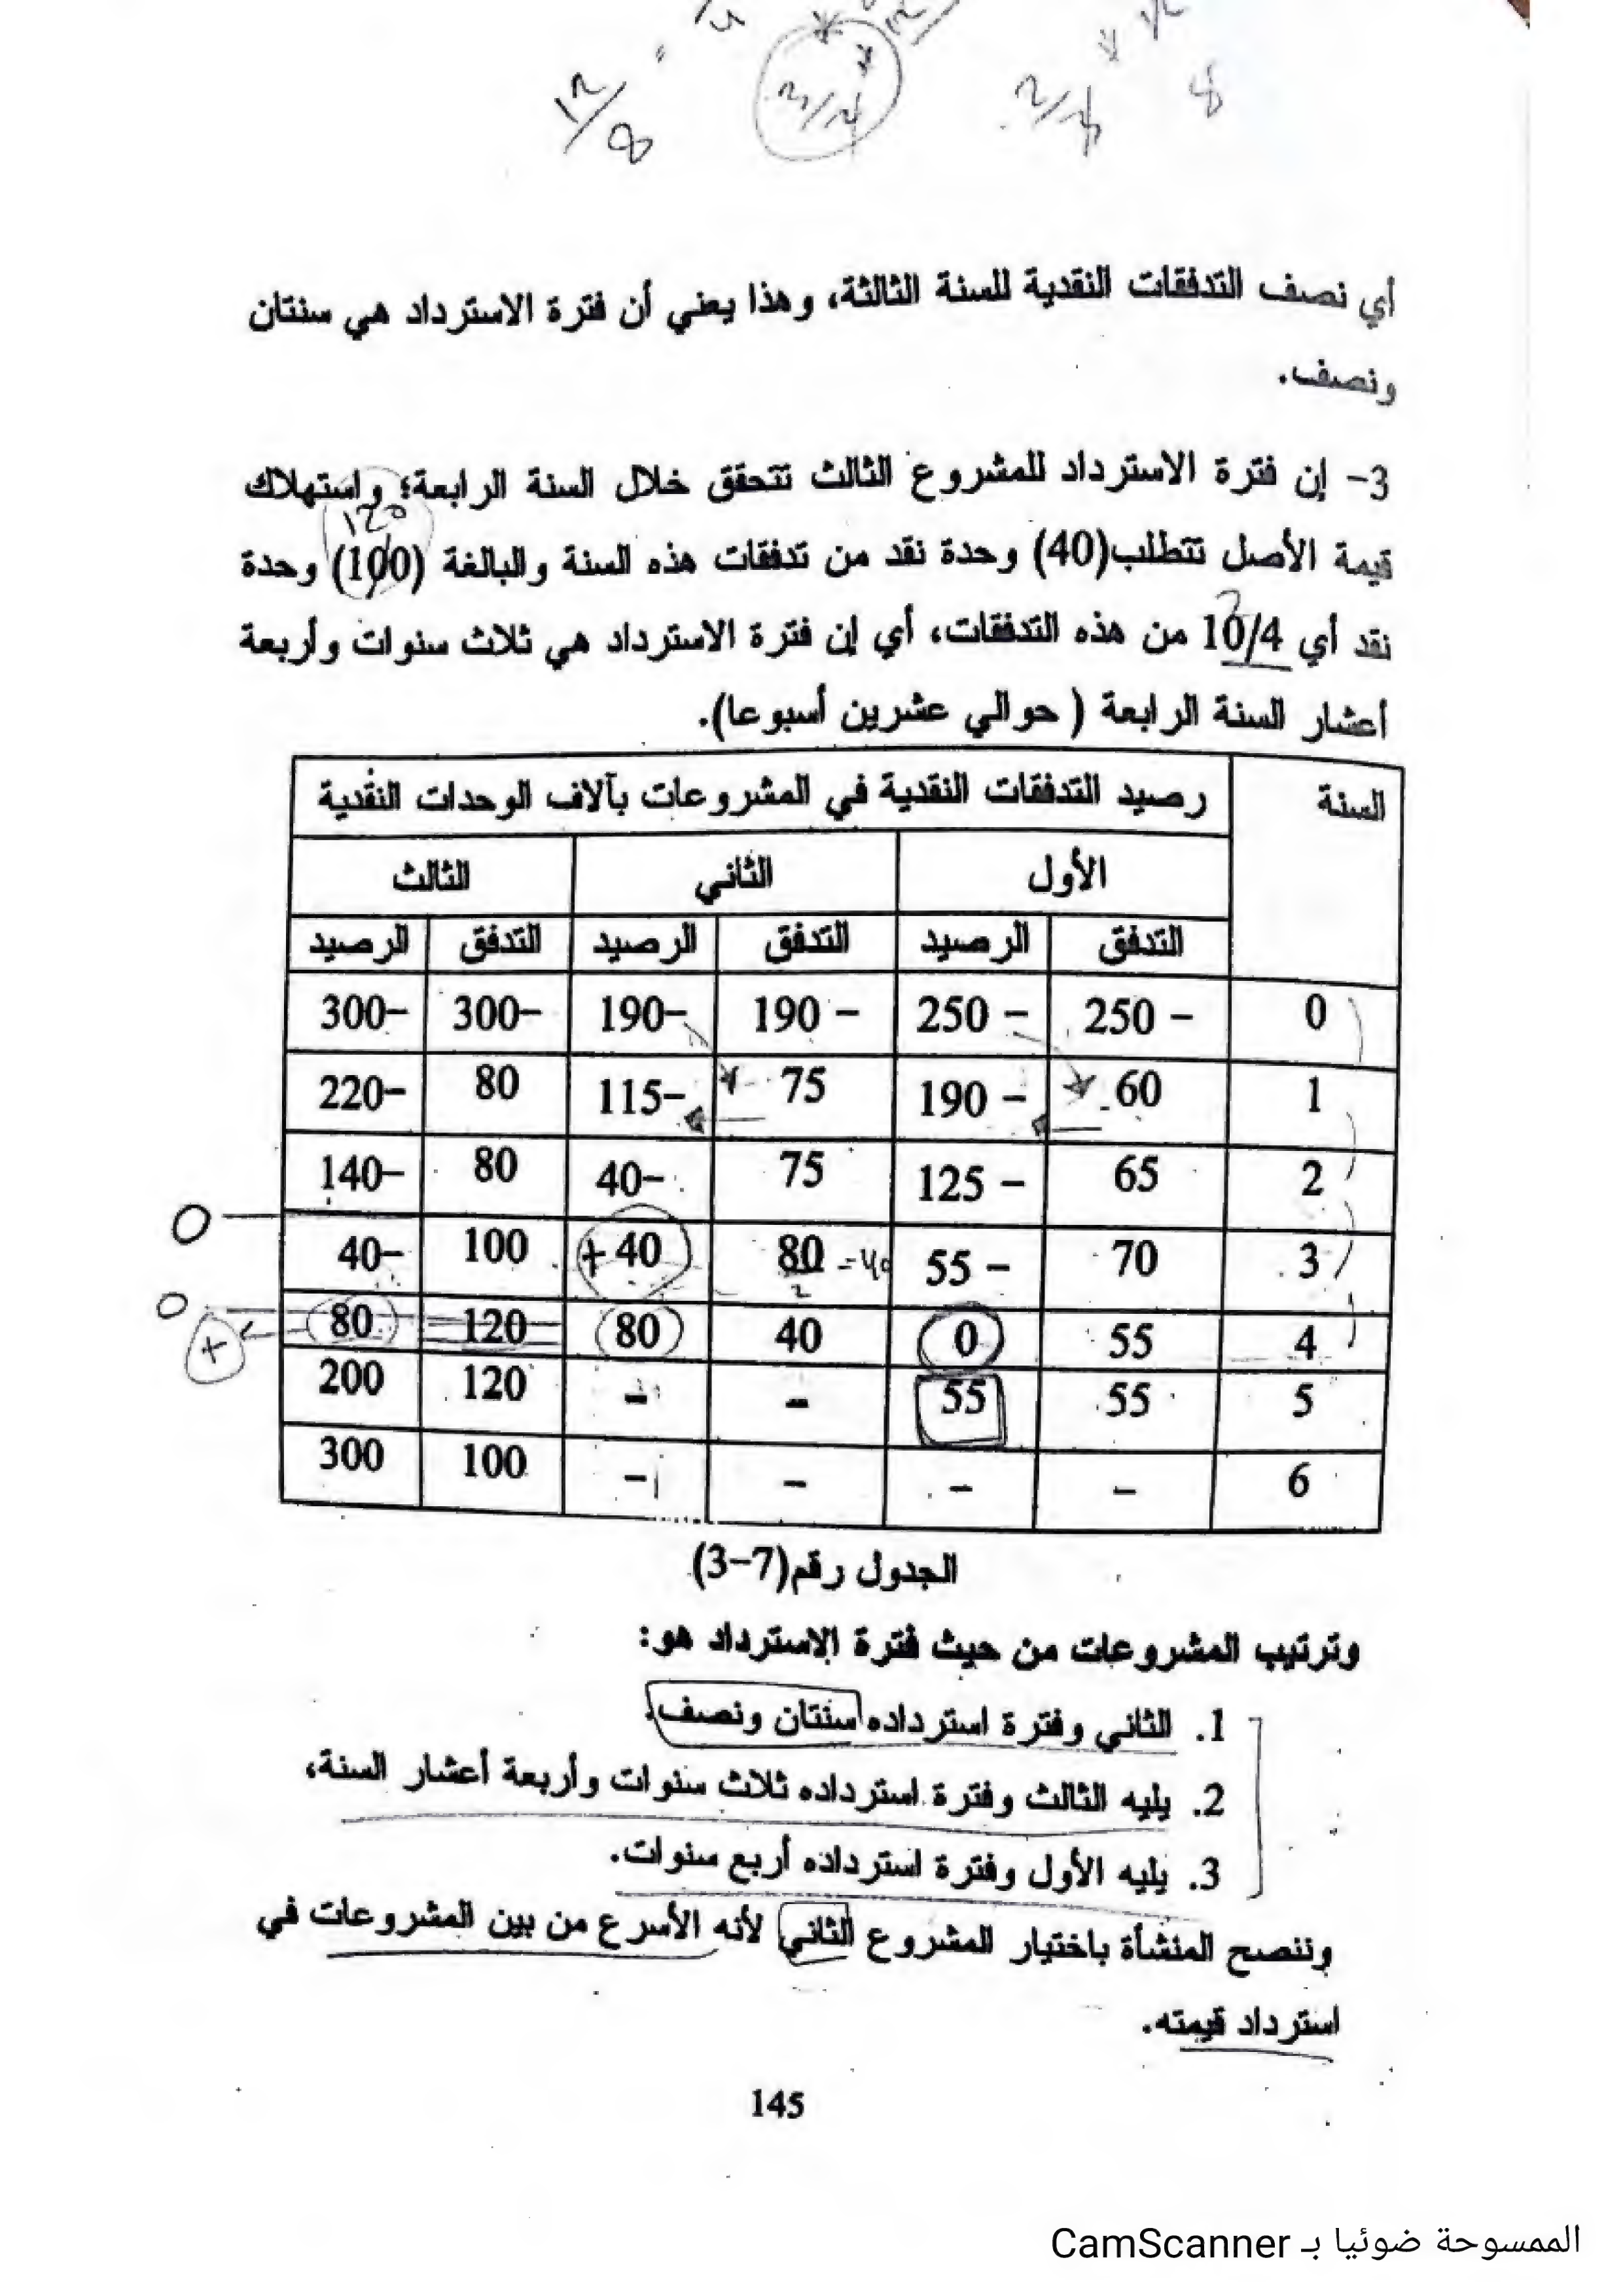 12/8
أي نصف التدفقات النقدية للسنة الثالثة، وهذا يعني أن فترة الاسترداد هي سنتان
ونصف.
3- إن فترة الاسترداد للمشروع الثالث تتحقق خلال السنة الرابعة؛ واستهلاك
١٢٠
قيمة الأصل تتطلب(40) وحدة نقد من تدفقات هذه السنة والبالغة (100) وحدة
نقد أي 10/4 من هذه التدفقات، أي إن فترة الاسترداد هي ثلاث سنوات وأربعة
أعشار السنة الرابعة ( حوالي عشرين أسبوعا).
السنة رصيد التدفقات النقدية في المشروعات بآلاف الوحدات النقدية
الأول الثاني الثالث
التدفق الرصيد التدفق الرصيد التدفق الرصيد
0 250 – 250 – 190 – 190– 300– 300–
1 60 190 – 75 115– 80 220–
2 65 125 – 75 40– 80 140–
3 70 55 – 80 +40 100 40–
4 55 0 40 80 120 80
5 55 55 – – 120 200
6 – – – – 100 300
الجدول رقم(7–3)
وترتيب المشروعات من حيث فترة الاسترداد هو:
1. الثاني وفترة استرداده سنتان ونصف.
2. يليه الثالث وفترة استرداده ثلاث سنوات وأربعة أعشار السنة،
3. يليه الأول وفترة استرداده أربع سنوات.
وننصح المنشأة باختيار المشروع الثاني لأنه الأسرع من بين المشروعات في
استرداد قيمته.
145
الممسوحة ضوئيا بـ CamScanner